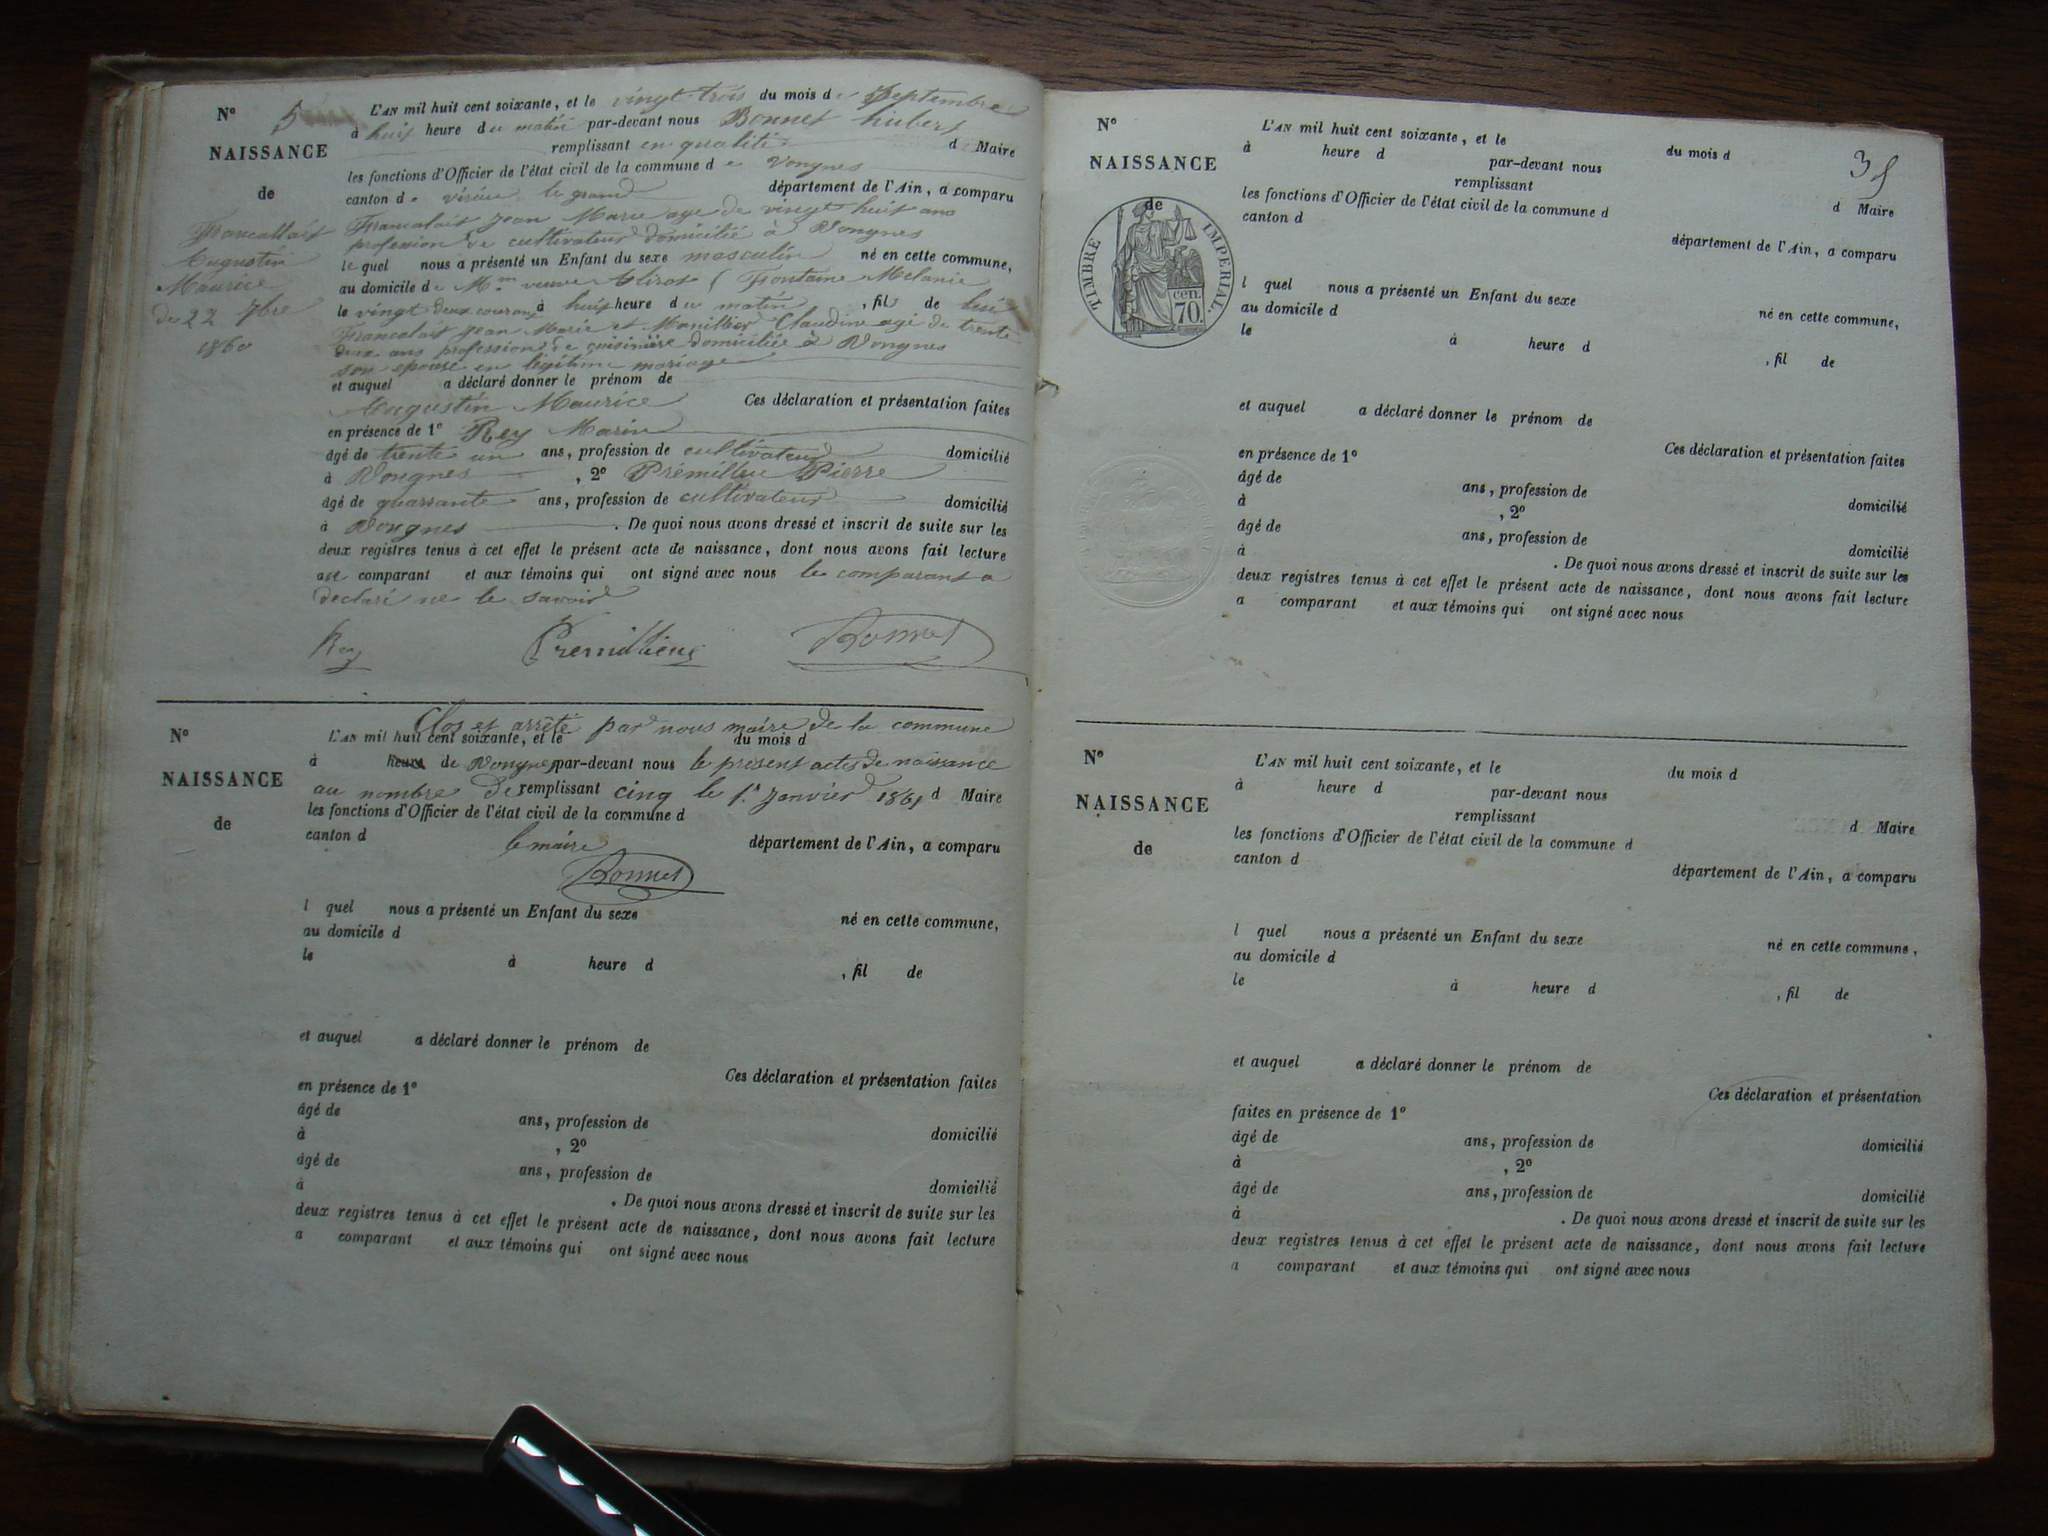 N° 5
NAISSANCE
de
Francallait
Augustin
Maurice
de 22 7bre
1860
L'AN mil huit cent soixante, et le vingt-trois du mois de Septembre
à huit heure du matin par-devant nous Bonnet hubert
remplissant en qualité d Maire
les fonctions d'Officier de l'état civil de la commune de Vongnes
canton de virieu le grand département de l'Ain, a comparu
Francalait Jean Marie age de vingt huit ans
profession de cultivateur domicilié à Vongnes
le quel nous a présenté un Enfant du sexe masculin né en cette commune,
au domicile de Mme veuve ( Fontaine Melanie
le vingt deux courant à huit heure du matin , fil de lui
Francalait Jean Marie et Claudine agé de trente
deux ans profession de cuisinière domiciliée à Vongnes
son epouse en légitime mariage
et auquel a déclaré donner le prénom de
Augustin Maurice Ces déclaration et présentation faites
en présence de 1° Rey Marin
âgé de trente un ans, profession de cultivateur domicilié
à Vongnes , 2° Prémillieu Pierre
âgé de quarrante ans, profession de cultivateur domicilié
à Vongnes . De quoi nous avons dressé et inscrit de suite sur les
deux registres tenus à cet effet le présent acte de naissance, dont nous avons fait lecture
au comparant et aux témoins qui ont signé avec nous le comparant a
declaré ne le savoir
Rey Premillieu Bonnet
Clos et arrêté par nous maire de la commune
N°
NAISSANCE
de
L'AN mil huit cent soixante, et le du mois d
à heure de Vongnes par-devant nous le present actes de naissance
au nombre de remplissant cinq le 1r Janvier 1861 d Maire
les fonctions d'Officier de l'état civil de la commune d
canton d le maire département de l'Ain, a comparu
Bonnet
l quel nous a présenté un Enfant du sexe né en cette commune,
au domicile d
le à heure d , fil de
et auquel a déclaré donner le prénom de
Ces déclaration et présentation faites
en présence de 1°
âgé de ans, profession de domicilié
à , 2°
âgé de ans, profession de domicilié
à . De quoi nous avons dressé et inscrit de suite sur les
deux registres tenus à cet effet le présent acte de naissance, dont nous avons fait lecture
a comparant et aux témoins qui ont signé avec nous
35
N°
NAISSANCE
de
TIMBRE IMPERIAL.
70. cen.
L'AN mil huit cent soixante, et le du mois d
à heure d par-devant nous
remplissant d Maire
les fonctions d'Officier de l'état civil de la commune d
canton d département de l'Ain, a comparu
l quel nous a présenté un Enfant du sexe né en cette commune,
au domicile d
le à heure d , fil de
et auquel a déclaré donner le prénom de
Ces déclaration et présentation faites
en présence de 1°
âgé de ans, profession de domicilié
à , 2°
âgé de ans, profession de domicilié
à . De quoi nous avons dressé et inscrit de suite sur les
deux registres tenus à cet effet le présent acte de naissance, dont nous avons fait lecture
a comparant et aux témoins qui ont signé avec nous
N°
NAISSANCE
de
L'AN mil huit cent soixante, et le du mois d
à heure d par-devant nous
remplissant d Maire
les fonctions d'Officier de l'état civil de la commune d
canton d département de l'Ain, a comparu
l quel nous a présenté un Enfant du sexe né en cette commune,
au domicile d
le à heure d , fil de
et auquel a déclaré donner le prénom de
Ces déclaration et présentation
faites en présence de 1°
âgé de ans, profession de domicilié
à , 2°
âgé de ans, profession de domicilié
à . De quoi nous avons dressé et inscrit de suite sur les
deux registres tenus à cet effet le présent acte de naissance, dont nous avons fait lecture
a comparant et aux témoins qui ont signé avec nous